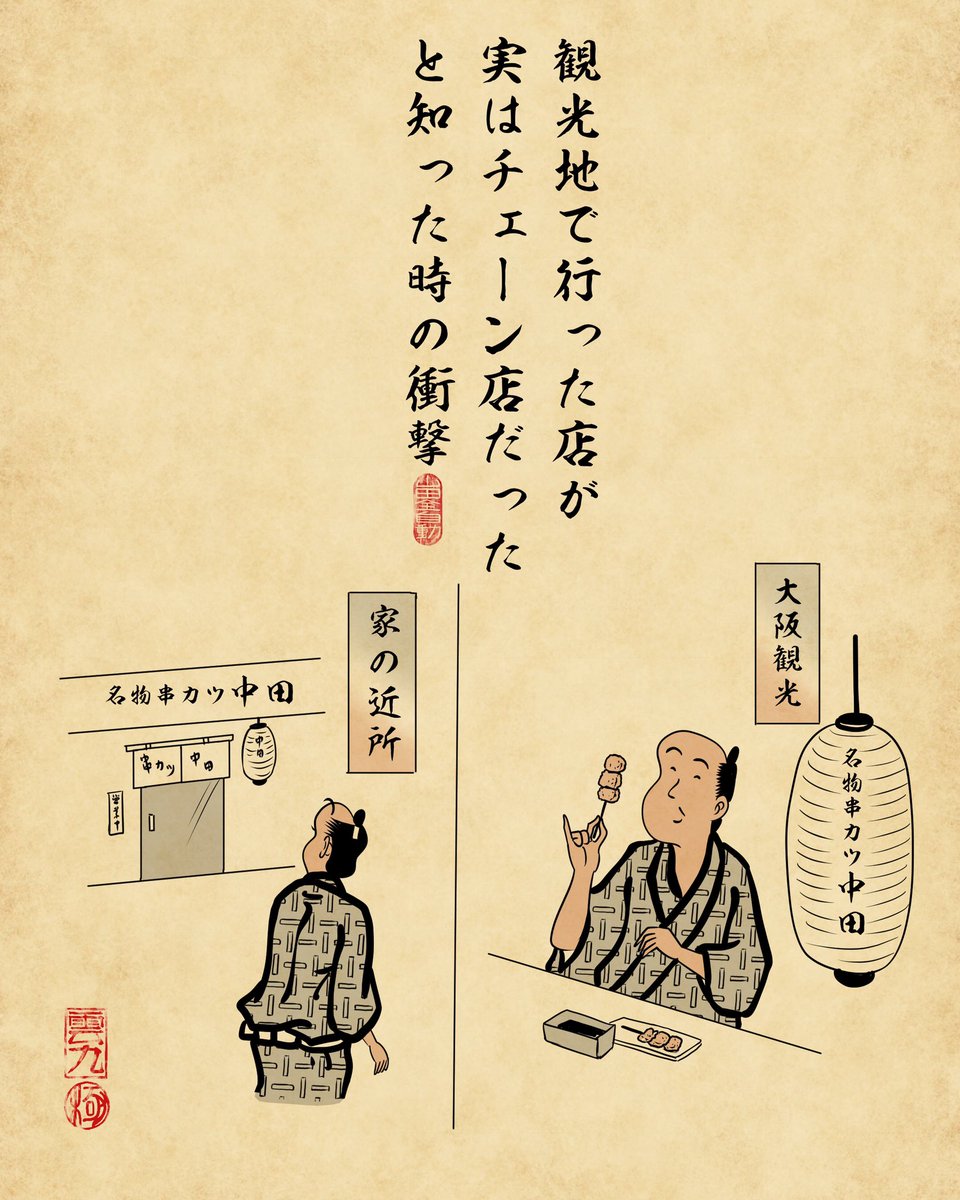 観光地で行った店が
実はチェーン店だった
と知った時の衝撃
大阪観光
名物串カツ中田
家の近所
名物串カツ中田
串カツ
中田
中田
営業中